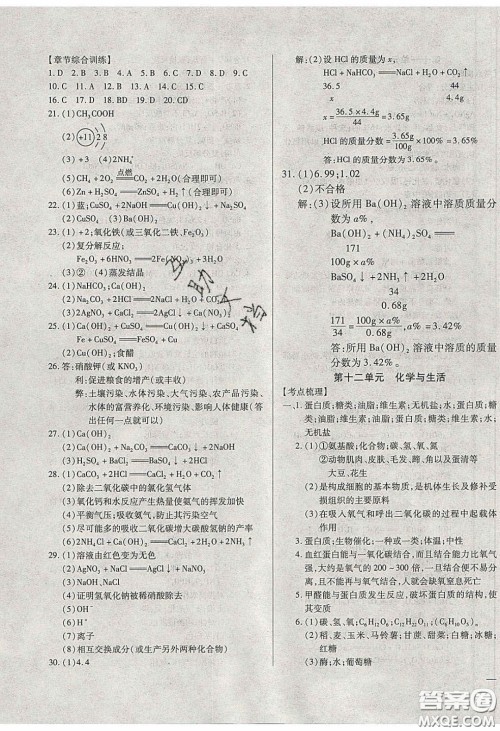 【章节综合训练】
1. D 2. B 3. B 4. A 5. C 6. B 7. D 8. D 9. C
10. C 11. C 12. A 13. C 14. A 15. A
16. C 17. D 18. BD 19. D 20. CD
21. (1)CH₃COOH
(2) +11 2 8
(3) +3 (4)2NH₄⁺
(5)CH₄ + 2O₂ 点燃 CO₂ + 2H₂O(合理即可)
(6)Zn + H₂SO₄══ZnSO₄ + H₂↑(合理即可)
22. (1)蓝;CuSO₄ + 2NaOH══Cu(OH)₂↓ + Na₂SO₄
(2)CuSO₄ (3)Ba(OH)₂
23. (1)氧化铁(或三氧化二铁);
(2)复分解反应;
Fe₂O₃ + 6HCl══2FeCl₃ + 3H₂O
(3)② (4)蒸发结晶
24. (1)NaHCO₃;Ca(OH)₂
(2)Na₂CO₃ + 2HCl══2NaCl + H₂O + CO₂↑
(3)2AgNO₃ + CaCl₂══2AgCl↓ + Ca(NO₃)₂
25. (1)Ca(OH)₂ + CuSO₄══Cu(OH)₂↓ + CaSO₄
Fe + CuSO₄══FeSO₄ + Cu
(2)Ca(OH)₂;食醋
26. 答:硝酸钾(或 KNO₃)
利:促进粮食的增产(或丰收)
弊:土壤污染、水体污染、大气污染、农产品污染、
环境污染、影响人类健康(合理即可)
27. (1)Ca(OH)₂
(2)Ca(OH)₂ + Na₂CO₃══CaCO₃↓ + 2NaOH
(3)H₂SO₄ + BaCl₂══BaSO₄↓ + 2HCl
28. (2)除去二氧化碳中的氯化氢气体
(3)氧化钙和水反应产生热量使氨气的挥发加快
(4)平衡气压;吸收氨气,防止污染空气
(5)尽可能多的吸收二氧化碳增大碳酸氢钠的产率
29. (1)溶液由红色变为无色
(2)AgNO₃ + NaCl══AgCl↓ + NaNO₃
(3)NaOH、NaCl
(4)证明氢氧化钠被稀硝酸除去
(5)OH⁻
(6)OH⁻
(7)离子
(8)相互交换成分(或产生另外两种化合物)
30. (1)4.4
解:(2)设 HCl 的质量为 x,
HCl + NaHCO₃══NaCl + H₂O + CO₂↑
36.5 44
x 4.4g
x = 36.5 × 4.4g / 44 = 3.65g
HCl 的质量分数 = 3.65g / 100g × 100% = 3.65%
答:HCl 的质量分数为 3.65%。
31. (1)6.99;1.02
(2)不合格
解:(3)设所用 Ba(OH)₂ 溶液中溶质质量分
数为 a%,
Ba(OH)₂ + (NH₄)₂SO₄══
171
100g × a%
BaSO₄↓ + 2NH₃↑ + 2H₂O
34
0.68g
171 / 34 = 100g × a% / 0.68g a% = 3.42%
答:所用 Ba(OH)₂ 溶液中溶质的质量分
数为 3.42%。
第十二单元 化学与生活
【考点梳理】
一、1. 蛋白质;糖类;油脂;维生素;无机盐;水;蛋白质;糖
类;油脂;维生素;水;无机盐;蛋白质;糖类;油脂;
无机盐
2. (1)①氨基酸;化合物;碳、氢、氧、氮
②动物肌肉、皮肤、毛发、蹄、角;蛋、奶、鱼、肉;
大豆、花生
(2)是构成细胞的基本物质,是机体生长及修补受
损组织的主要原料
(3)在吸入氧气和呼出二氧化碳的过程中起载体
作用
3. 蛋白质;生物催化;一种或一类;体温;中性
4. 血红蛋白能与一氧化碳结合,而且结合能力很
强,大约是氧气的 200~300 倍,一旦结合便不容
易与氧气结合,会缺氧窒息死亡
5. 甲醛能与蛋白质发生反应,破坏蛋白质的结构
6. (1)碳、氢、氧;C₆H₁₂O₆;C₁₂H₂₂O₁₁;(C₆H₁₀O₅)ₙ
(2)稻、麦、玉米、马铃薯;甘蔗、甜菜;白糖、冰糖、
红糖
(3)酶;水;葡萄糖
互助文档
答案圈
MXQE.COM